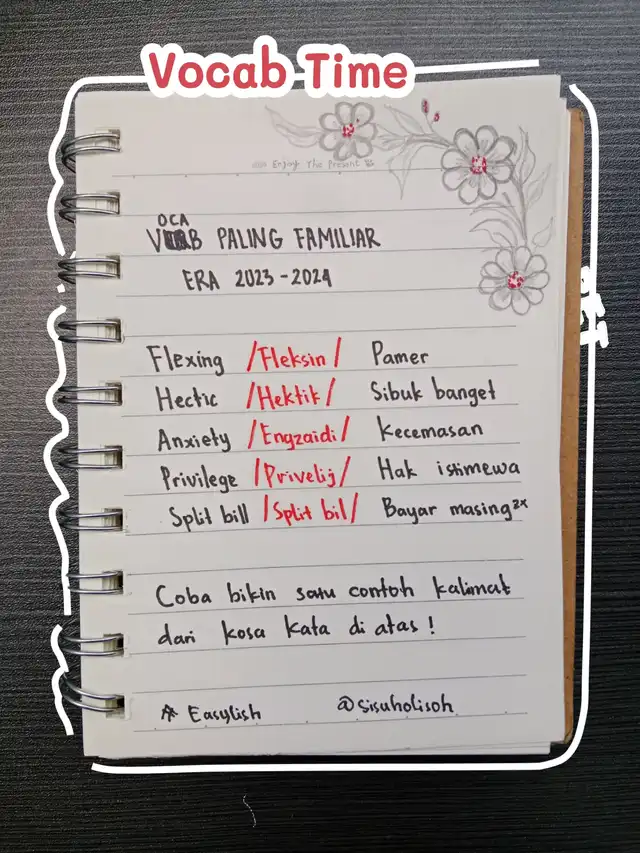 Vocab Time
Enjoy The Present
OCA
VB PALING FAMILIAR
ERA 2023-2024
Flexing /Fleksin/ Pamer
Hectic /Hektik/ Sibuk banget
Anxiety /Engzaidi/ Kecemasan
Privilege /Privelij/ Hak istimewa
Split bill /Split bil/ Bayar masing²ˣ
Coba bikin satu contoh kalimat
dari kosa kata di atas !
# Easylish @sisuholisoh